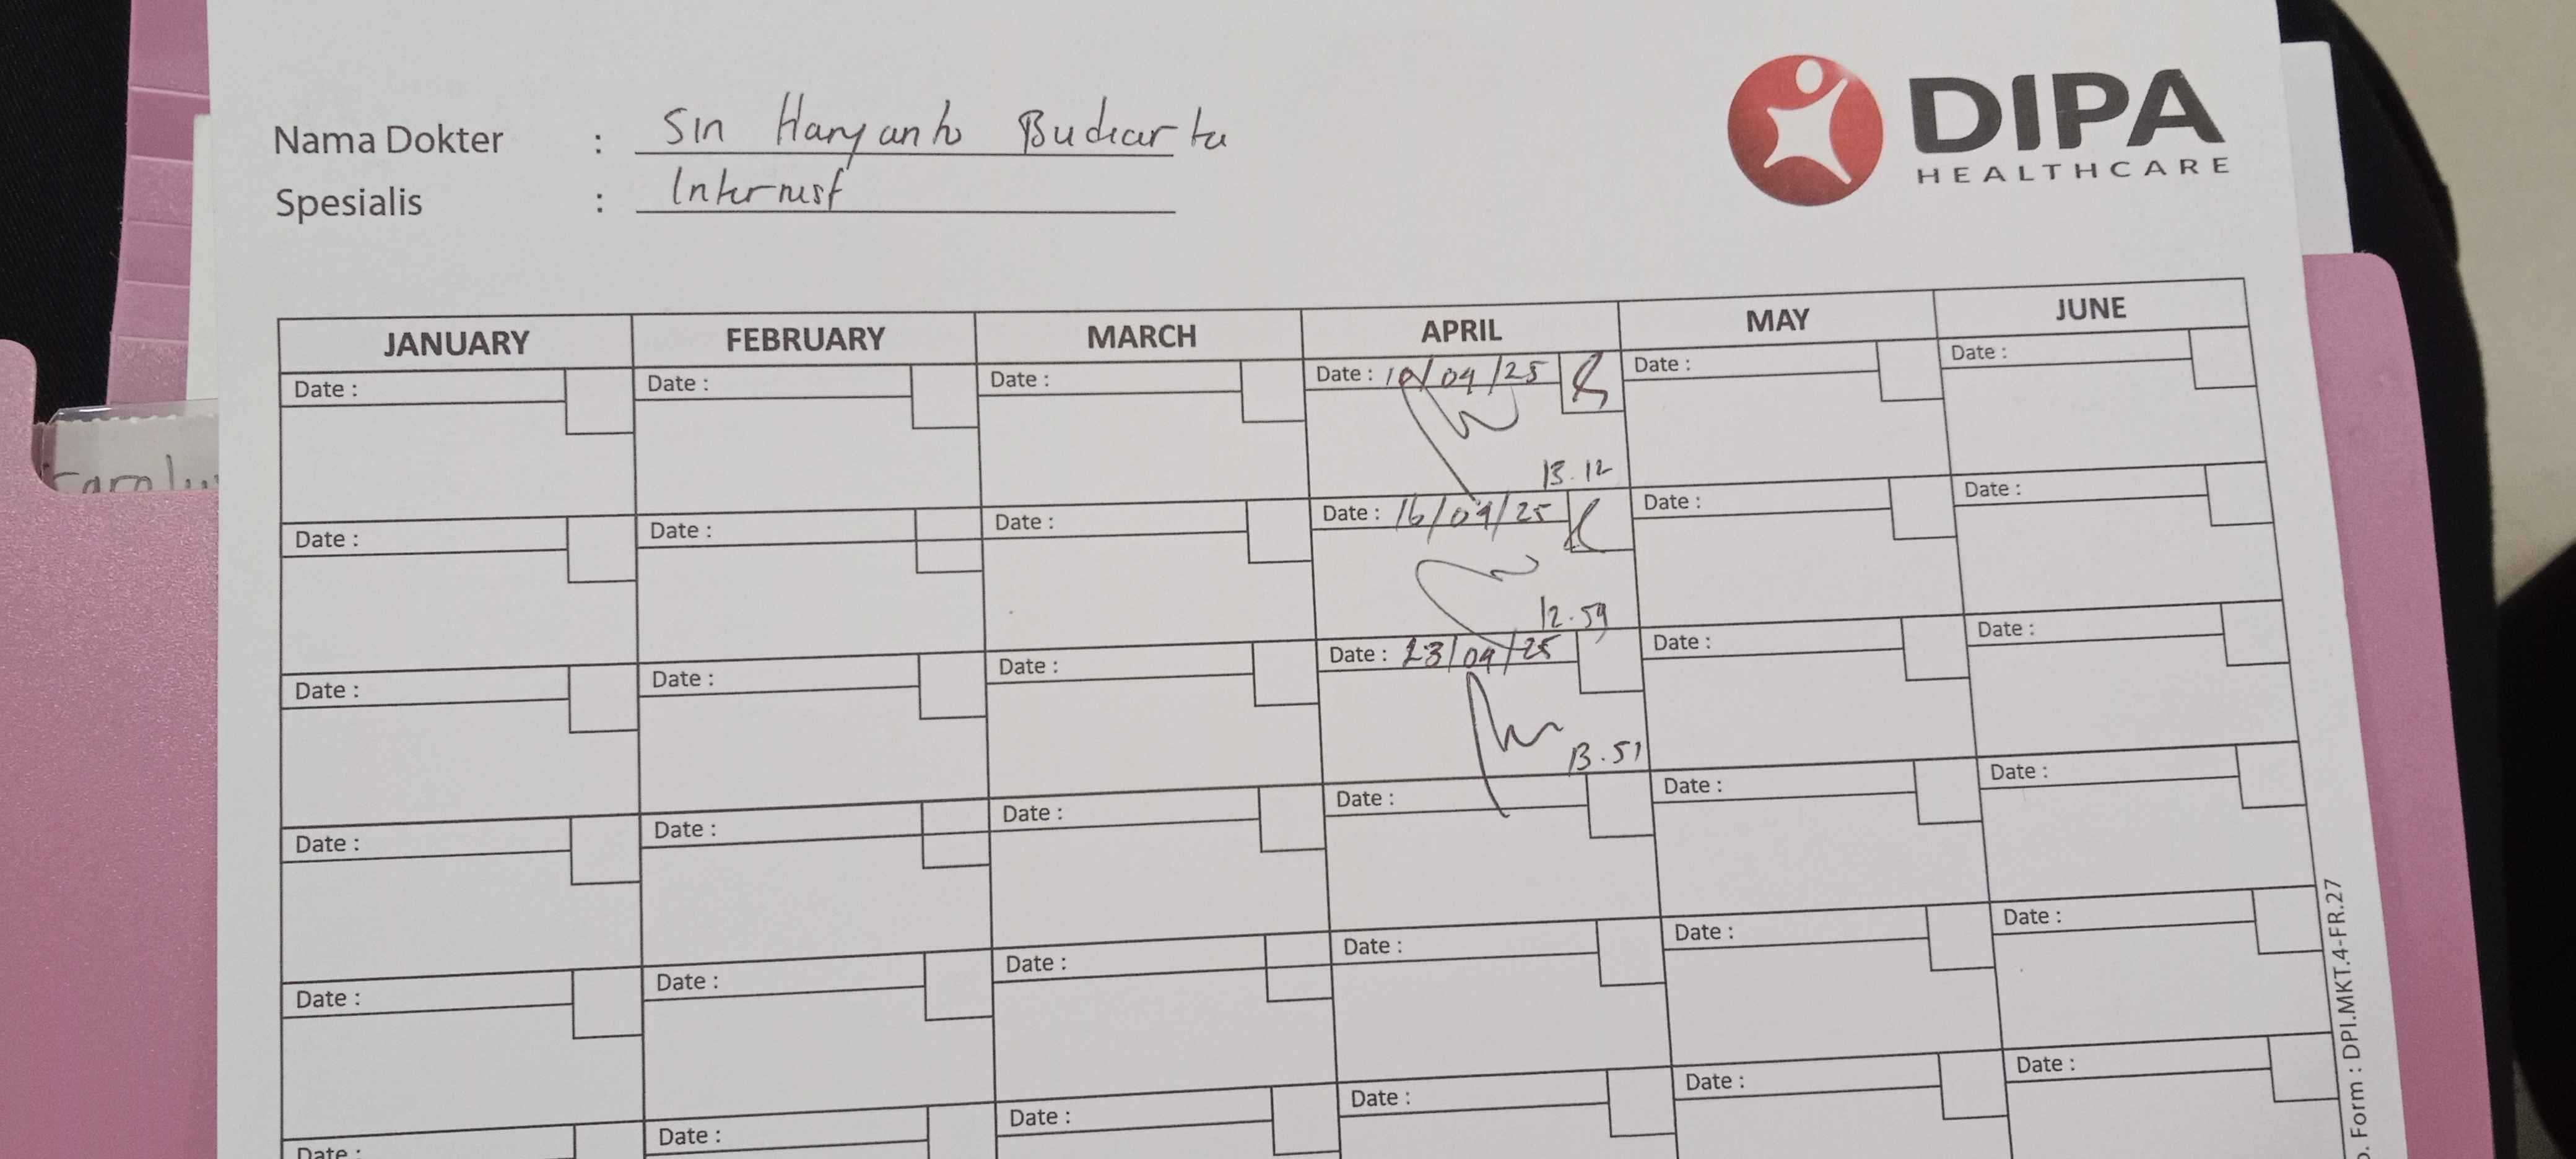 Nama Dokter : Sin Haryanto Budiarta
Spesialis : Internist
DIPA
HEALTHCARE
JANUARY FEBRUARY MARCH APRIL MAY JUNE
Date : Date : Date : Date : 10/04/25 Date : Date :
13.12
Date : Date : Date : Date : 16/04/25 Date : Date :
12.59
Date : Date : Date : Date : 23/04/25 Date : Date :
13.51
Date : Date : Date : Date : Date : Date :
Date : Date : Date : Date : Date : Date :
Date : Date : Date : Date : Date : Date :
Form : DPI.MKT.4-FR.27